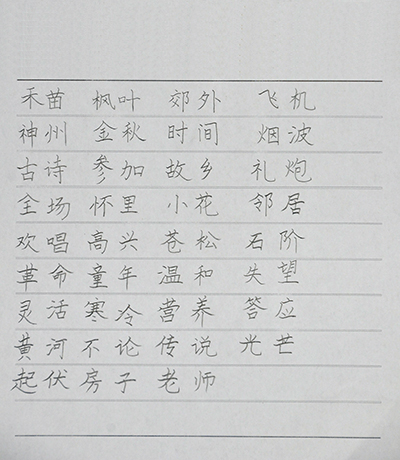 禾苗 枫叶 郊外 飞机
神州 金秋 时间 烟波
古诗 参加 故乡 礼炮
全场 怀里 小花 邻居
欢唱 高兴 苍松 石阶
革命 童年 温和 失望
灵活 寒冷 营养 答应
黄河 不论 传说 光芒
起伏 房子 老师